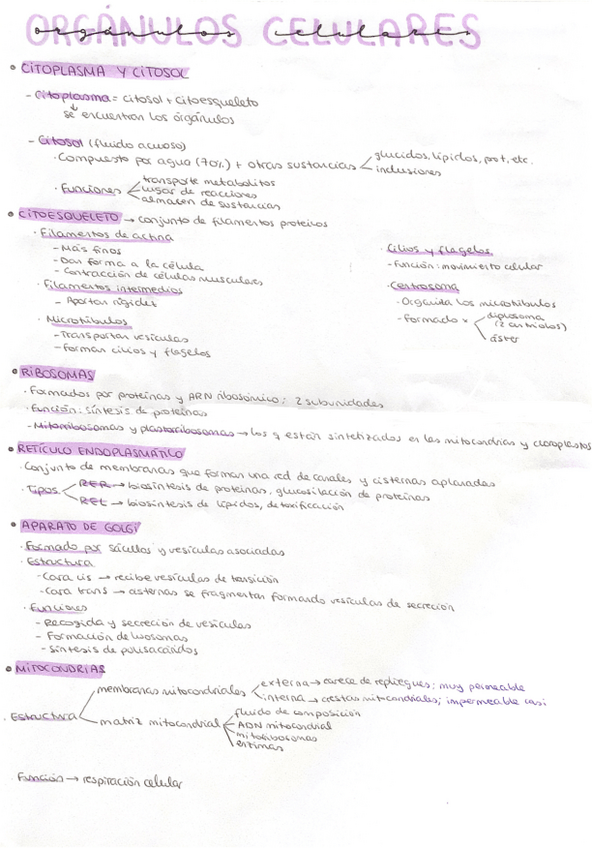 ORGÁNULOS CELULARES
orgánulos celulares
• CITOPLASMA Y CITOSOL
- Citoplasma = citosol + citoesqueleto
↓
se encuentran los orgánulos
- Citosol (fluido acuoso)
· Compuesto por agua (70%) + otras sustancias
glucidos, lípidos, prot, etc.
inclusiones
· Funciones
transporte metabolitos
lugar de reacciones
almacen de sustancias
• CITOESQUELETO → conjunto de filamentos proteicos
· Filamentos de actina
- Más finos
- Dan forma a la célula
- Contracción de células musculares
· Filamentos intermedios
- Aportan rigidez
· Microtúbulos
- Transportan vesículas
- Forman cilios y flagelos
· Cilios y flagelos
- Función: movimiento celular
· Centrosoma
- Organiza los microtúbulos
- Formado x
diplosoma
(2 centriolos)
áster
• RIBOSOMAS
· Formados por proteínas y ARN ribosómico; 2 subunidades
· Función: síntesis de proteínas
- Mitorribosomas y plastorribosomas → los q están sintetizados en las mitocondrias y cloroplastos
• RETÍCULO ENDOPLASMÁTICO
· Conjunto de membranas que forman una red de canales y cisternas aplanadas
· Tipos
RER → biosíntesis de proteínas, glucosilación de proteínas
REL → biosíntesis de lípidos, detoxificación
• APARATO DE GOLGI
· Formado por sáculos y vesículas asociadas
· Estructura
- Cara cis → recibe vesículas de transición
- Cara trans → cisternas se fragmentan formando vesículas de secreción
· Funciones
- Recogida y secreción de vesículas
- Formación de lisosomas
- Síntesis de polisacáridos
• MITOCONDRIAS
· Estructura
membranas mitocondriales
externa → carece de repliegues; muy permeable
interna → crestas mitocondriales; impermeable casi
matriz mitocondrial
fluido de composición
ADN mitocondrial
mitorribosomas
enzimas
· Función → respiración celular